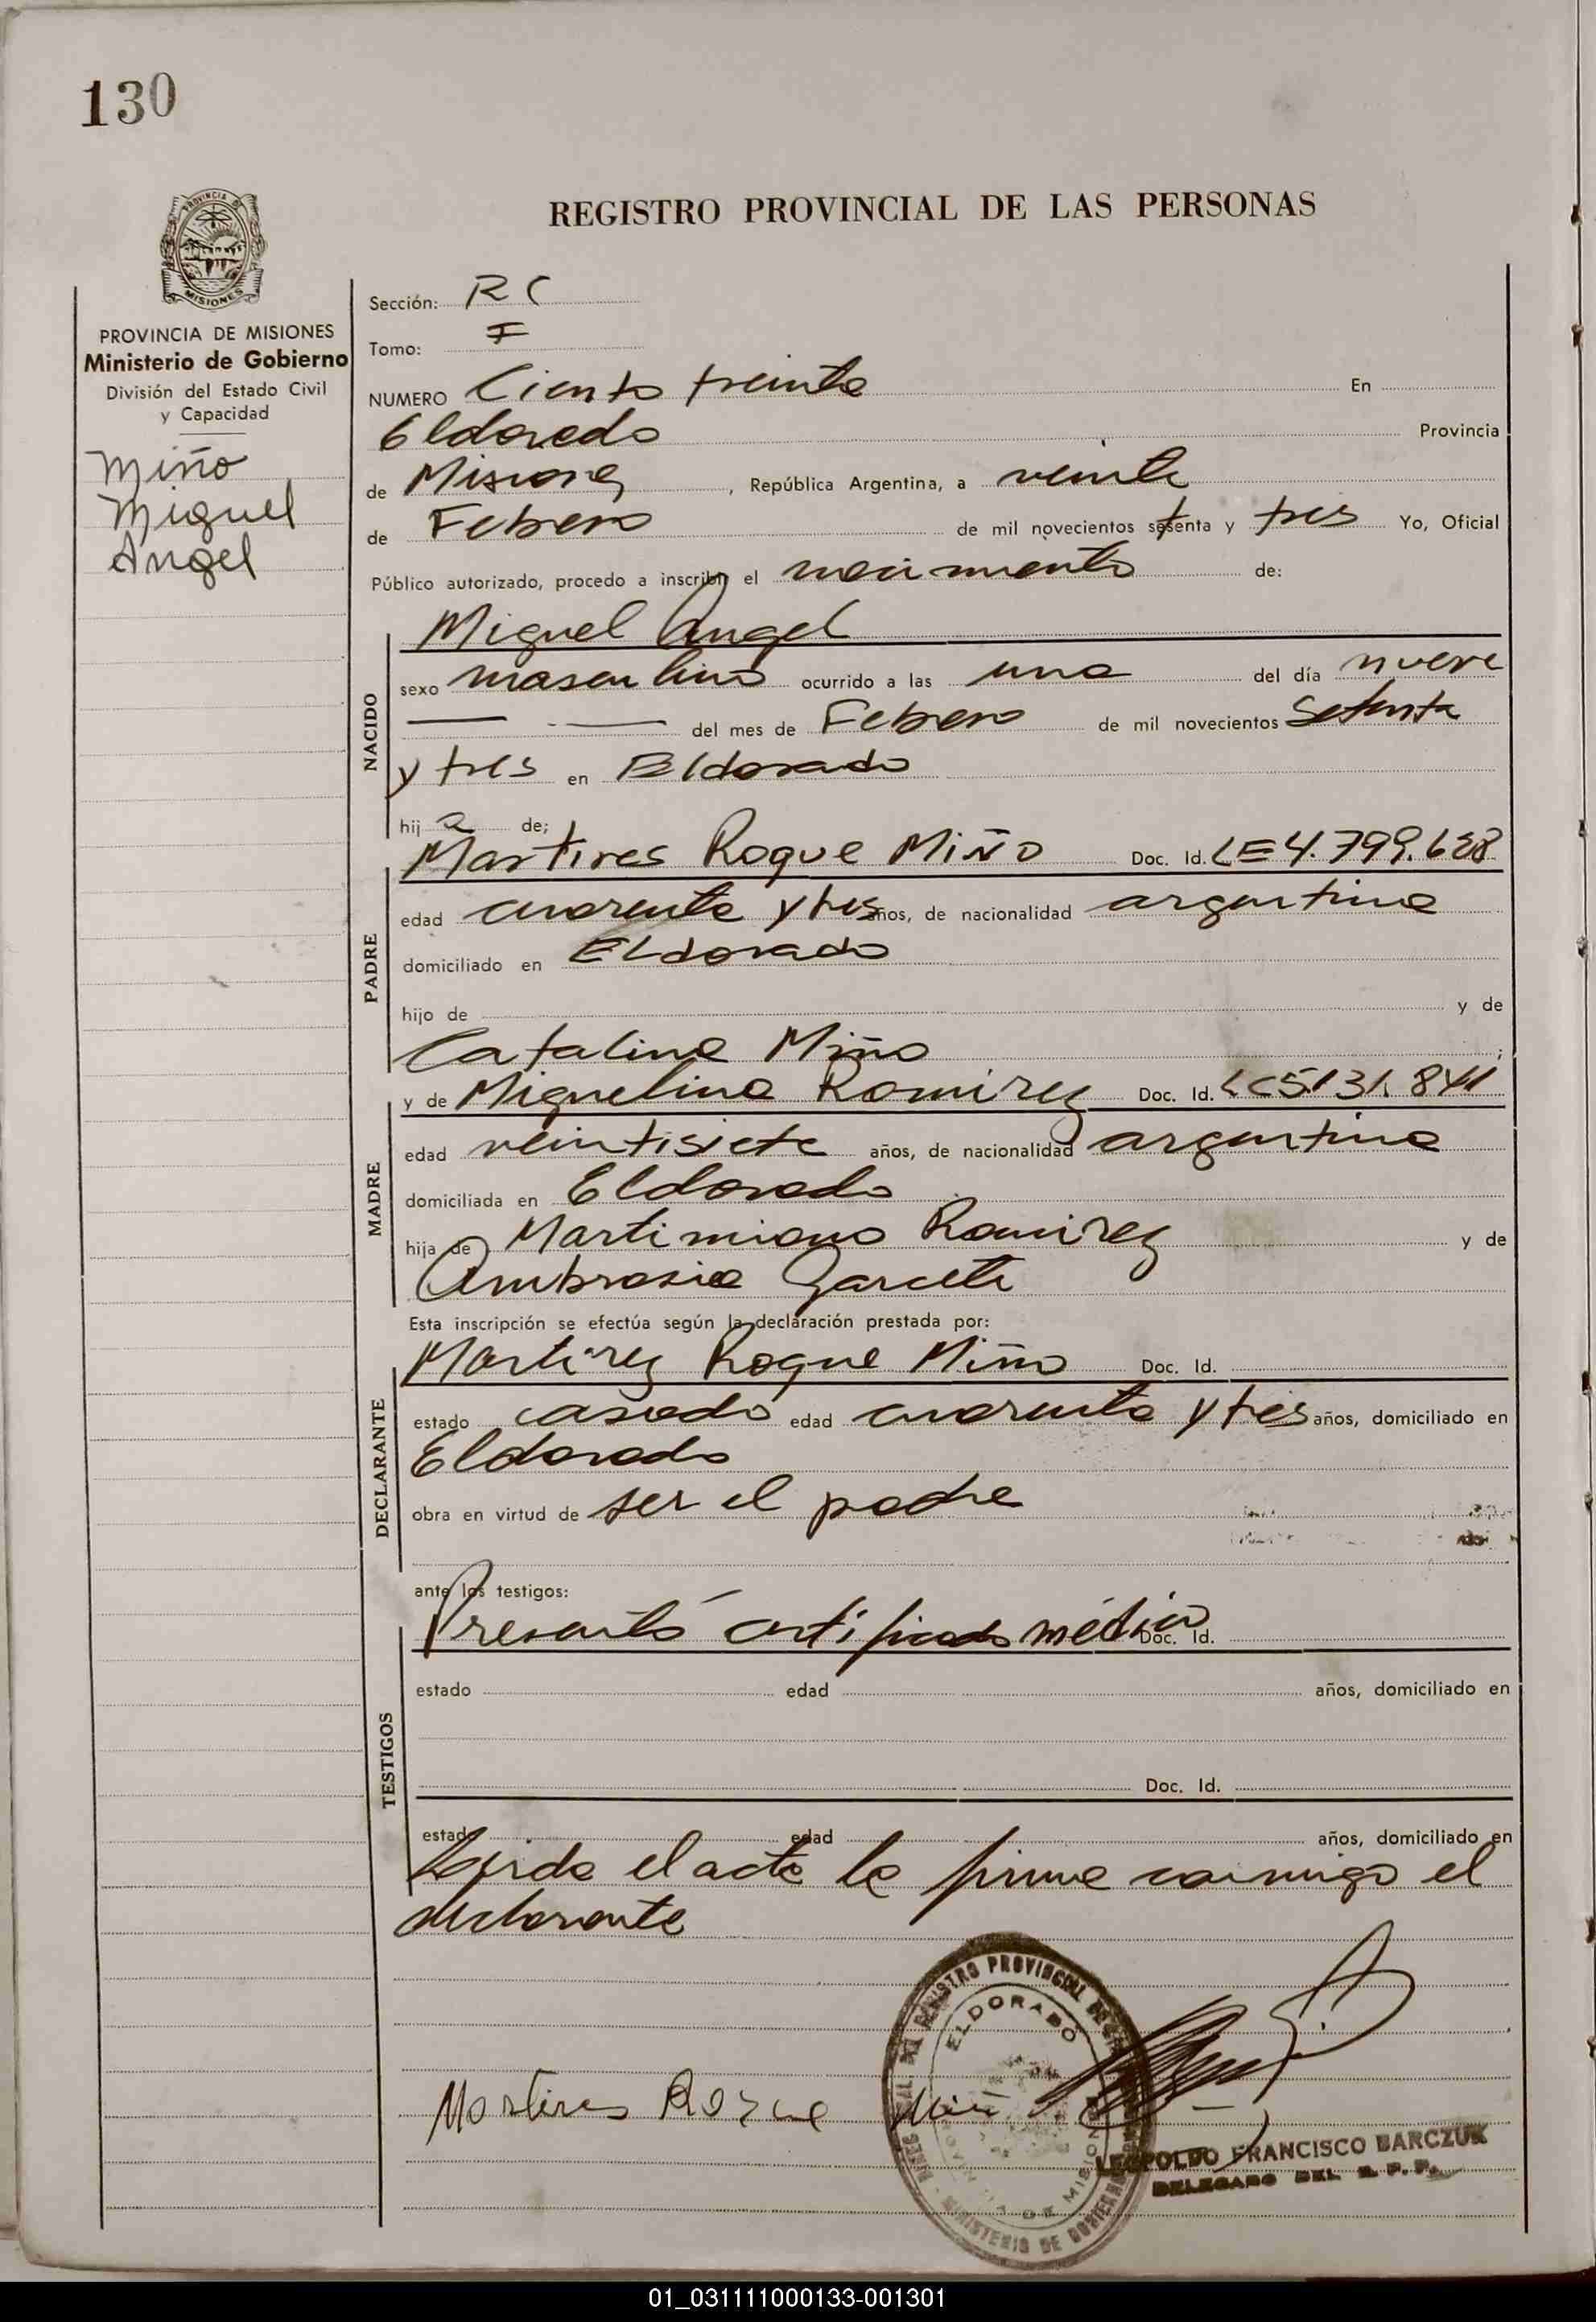 130
PROVINCIA DE
MISIONES
REGISTRO PROVINCIAL DE LAS PERSONAS
PROVINCIA DE MISIONES
Ministerio de Gobierno
División del Estado Civil
y Capacidad
Miño
Miguel
Angel
Sección: RC
Tomo: I
NUMERO Ciento treinta En
Eldorado Provincia
de Misiones, República Argentina, a veinte
de Febrero de mil novecientos setenta y tres Yo, Oficial
Público autorizado, procedo a inscribir el nacimiento de:
Miguel Angel
NACIDO
sexo masculino ocurrido a las una del día nueve
del mes de Febrero de mil novecientos Setenta
y tres en Eldorado
hij o de;
Martires Roque Miño Doc. Id. LE 4.799.628
PADRE
edad cuarenta y tres años, de nacionalidad argentina
domiciliado en Eldorado
hijo de y de
Catalina Miño ;
y de Miguelina Ramirez Doc. Id. LC5131.841
MADRE
edad veintisiete años, de nacionalidad argentina
domiciliada en Eldorado
hija de Martimiano Ramirez y de
Ambrosia Garcete
Esta inscripción se efectúa según la declaración prestada por:
Martirez Roque Miño Doc. Id.
DECLARANTE
estado casado edad cuarenta y tres años, domiciliado en
Eldorado
obra en virtud de ser el padre
ante los testigos:
Presentó certificado médico Doc. Id.
TESTIGOS
estado edad años, domiciliado en
Doc. Id.
estado edad años, domiciliado en
Leida el acta la firma conmigo el
declarante
REGISTRO PROVINCIAL DE
ELDORADO
MINISTERIO DE GOBIERNO
Martires Roque Miño
LEOPOLDO FRANCISCO BARCZUK
DELEGADO DEL R. P. P.
01_031111000133-001301